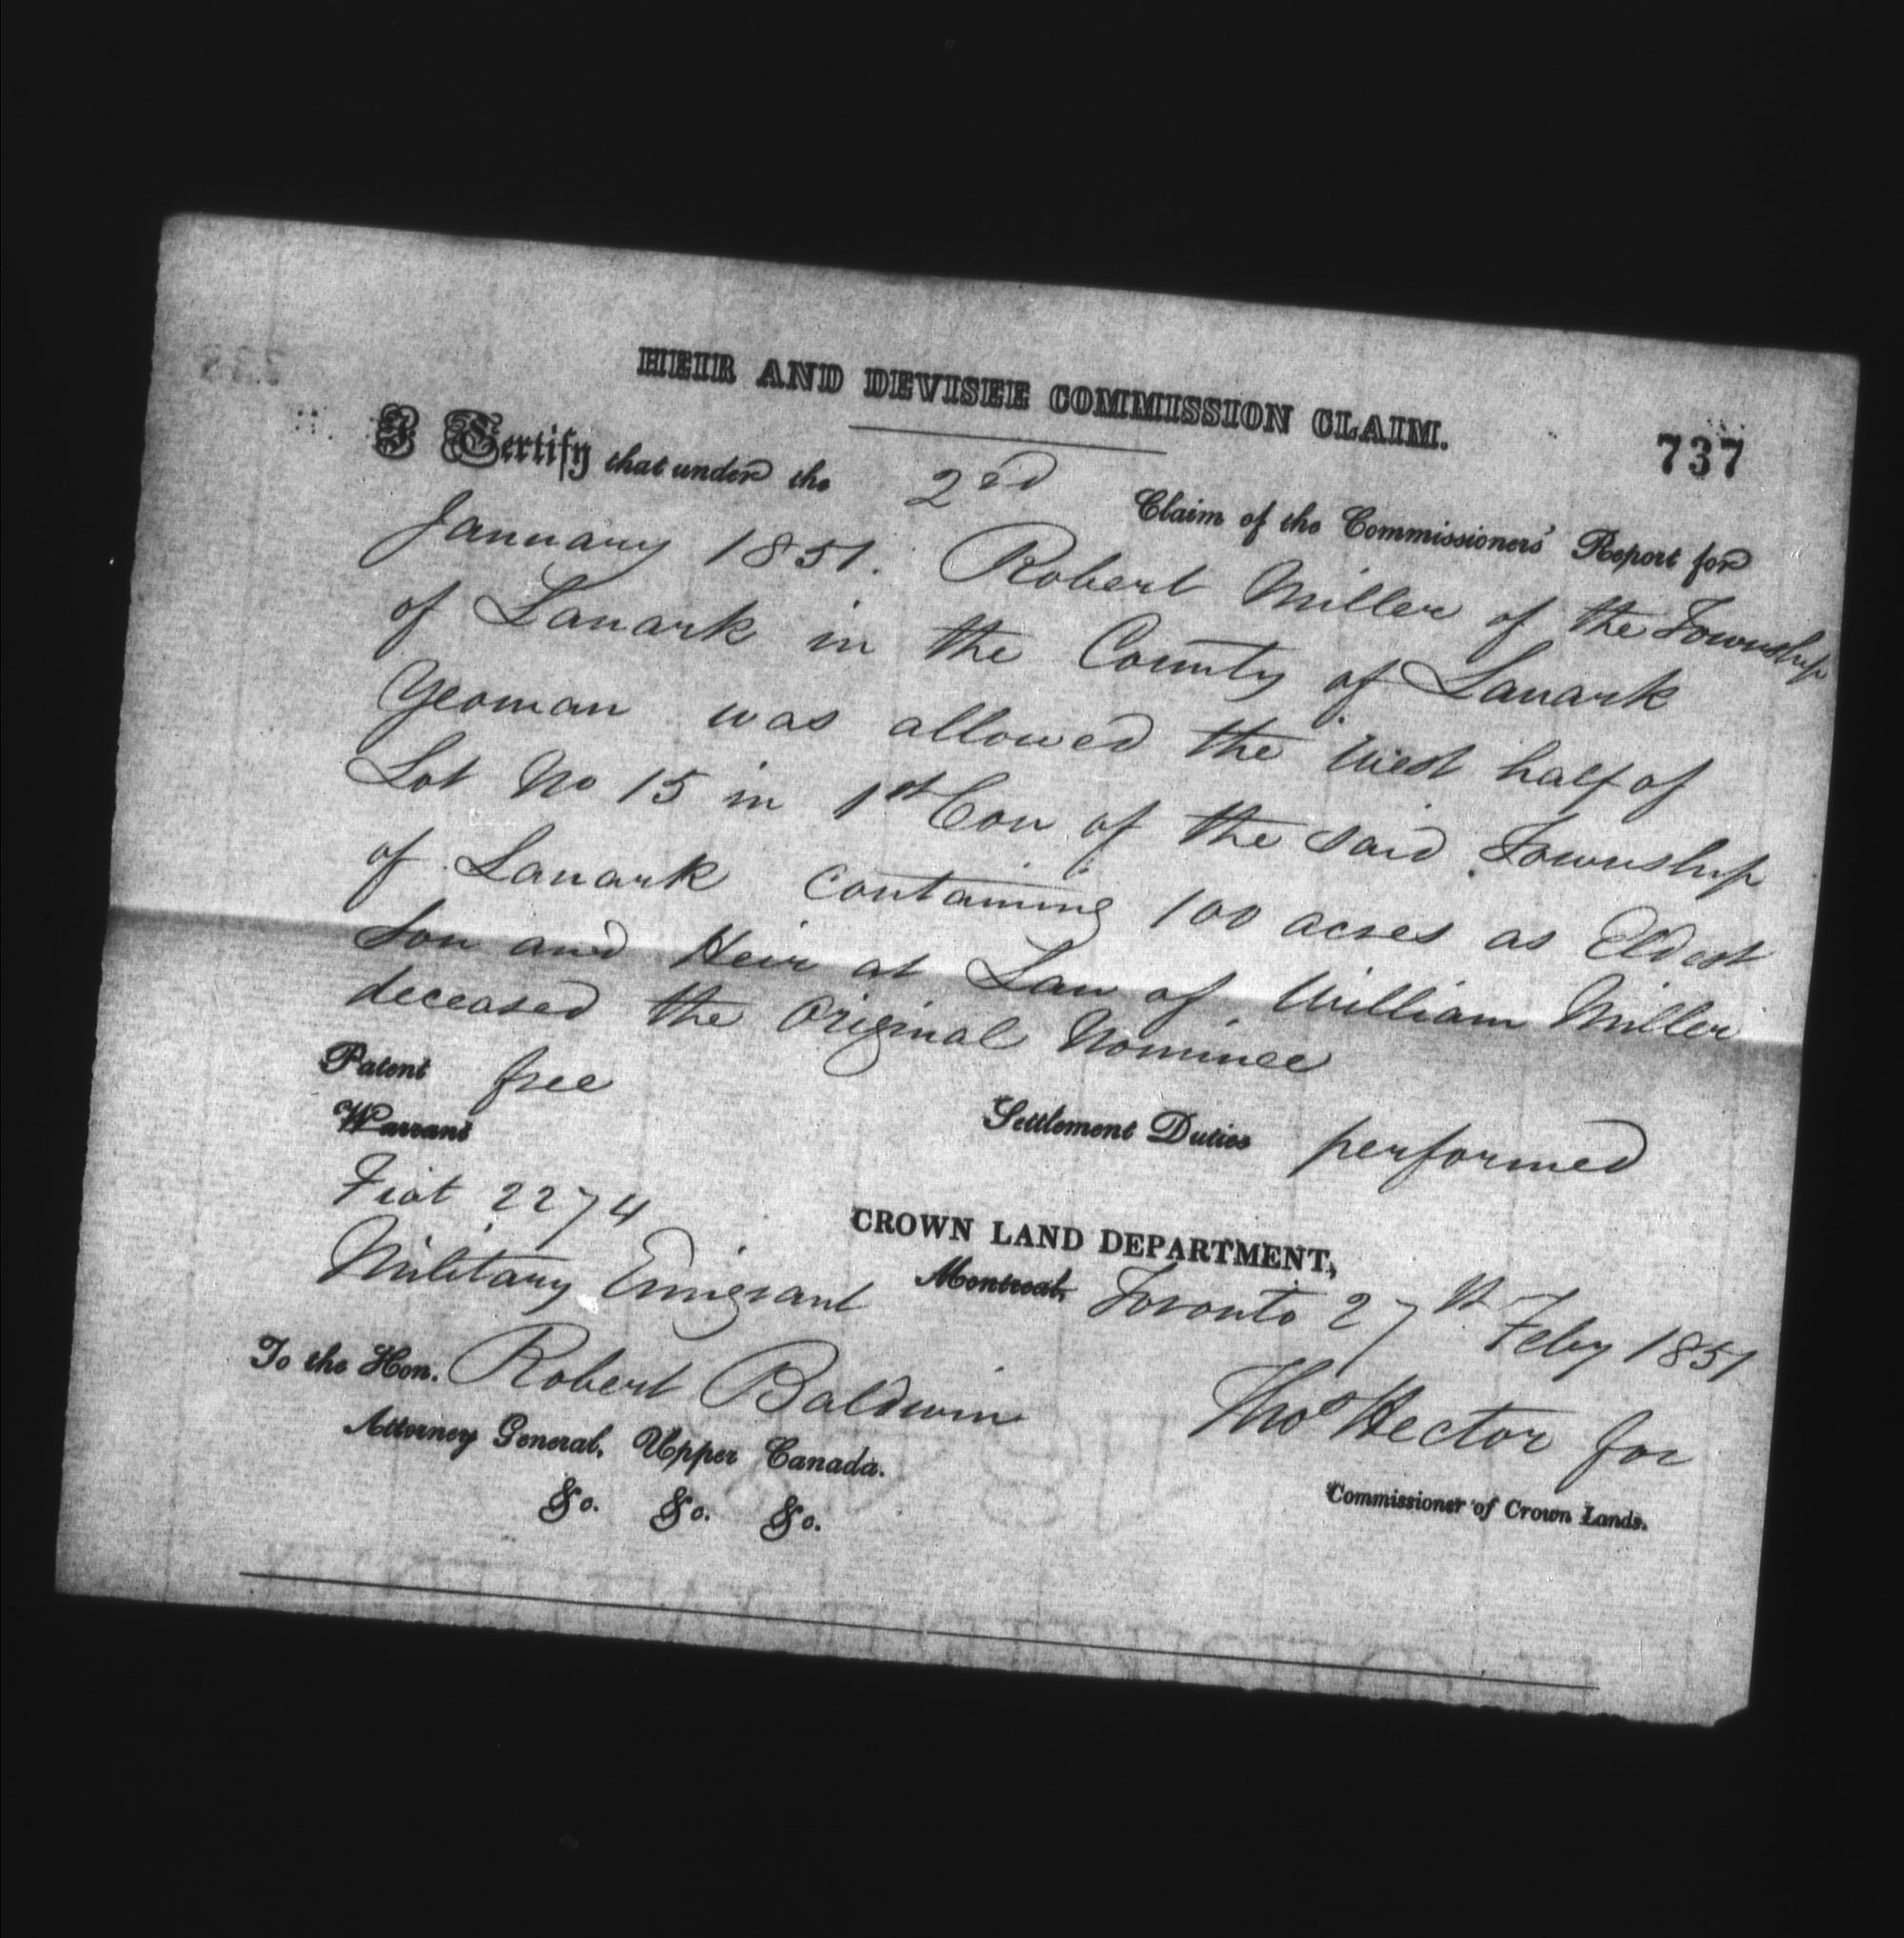 HEIR AND DEVISEE COMMISSION CLAIM.
737
I Certify that under the 2nd Claim of the Commissioners' Report for
January 1851. Robert Miller of the Township
of Lanark in the County of Lanark
Yeoman was allowed the West half of
Lot No 15 in 1st Con of the said Township
of Lanark Containing 100 acres as Eldest
Son and Heir at Law of William Miller
deceased the Original Nominee
Patent free
Warrant
Settlement Duties performed
Fiat 2274
Military Emigrant
CROWN LAND DEPARTMENT,
Montreal, Toronto 27th Feby 1851
To the Hon. Robert Baldwin
Attorney General, Upper Canada.
&c. &c. &c.
Thos Hector for
Commissioner of Crown Lands.